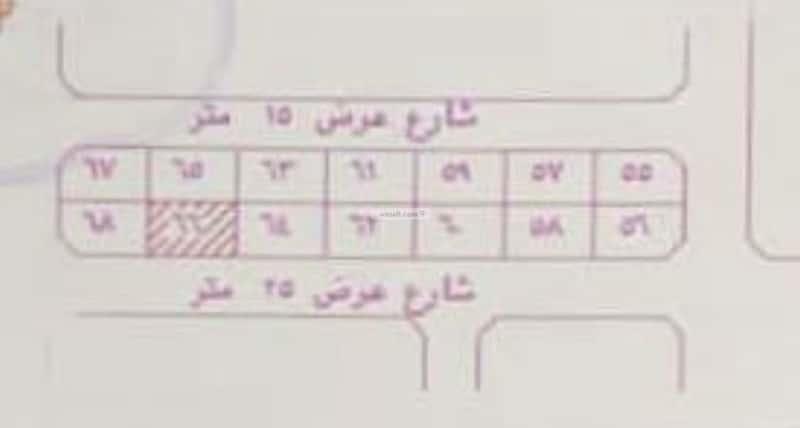 شارع عرض ١٥ متر
٥٥ ٥٧ ٥٩ ٦١ ٦٣ ٦٥ ٦٧
٥٦ ٥٨ ٦٠ ٦٢ ٦٤ ٦٦ ٦٨
شارع عرض ٢٥ متر